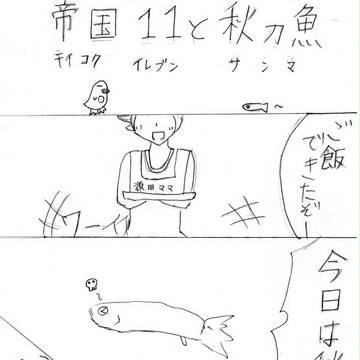 帝国11と秋刀魚
テイコク イレブン サンマ
ご飯
できたぞー
源田ママ
ワーイ
今日は秋